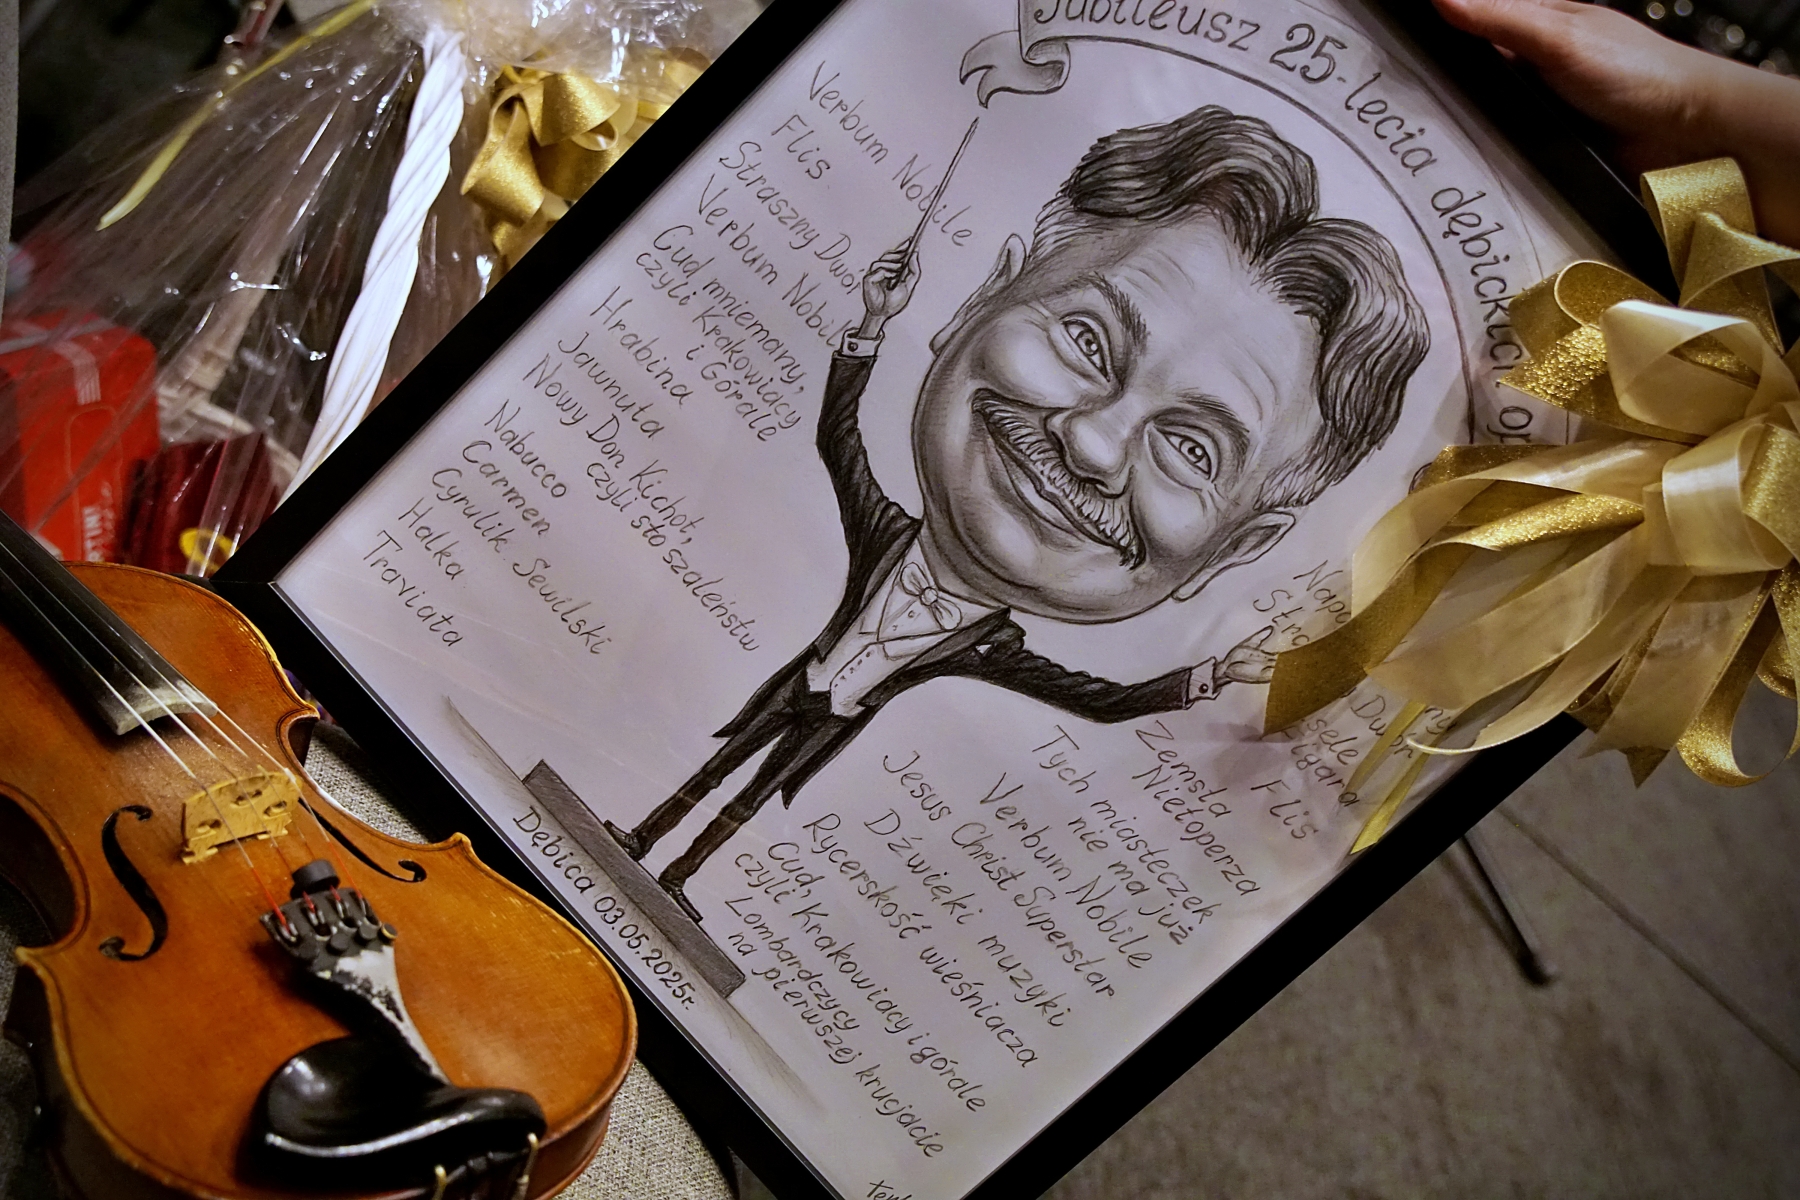 Jubileusz 25-lecia dębickich
Verbum Nobile
Flis
Straszny Dwór
Verbum Nobile
Cud mniemany,
czyli Krakowiacy
i Górale
Hrabina
Jawnuta
Nowy Don Kichot,
czyli sto szaleństw
Nabucco
Carmen
Cyrulik Sewilski
Halka
Traviata
Flis
Zemsta
Nietoperza
Tych miasteczek
nie ma już
Verbum Nobile
Jesus Christ Superstar
Dźwięki muzyki
Rycerskość wieśniacza
Cud, Krakowiacy i górale
czyli
Lombardczycy
na pierwszej krucjacie
Dębica 03.05.2025r.